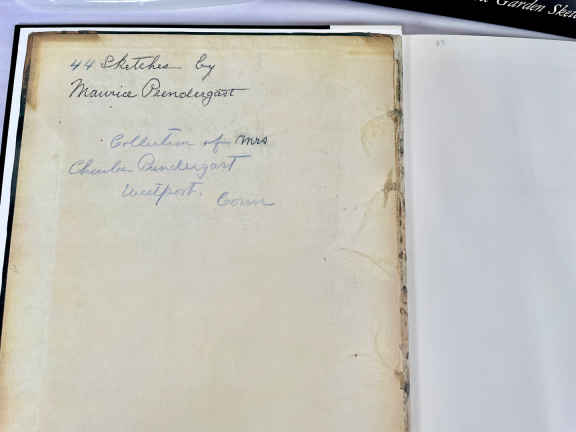 Garden Sketc
44 Sketches by
Maurice Prendergast
Collection of Mrs
Charles Prendergast
Westport. Conn